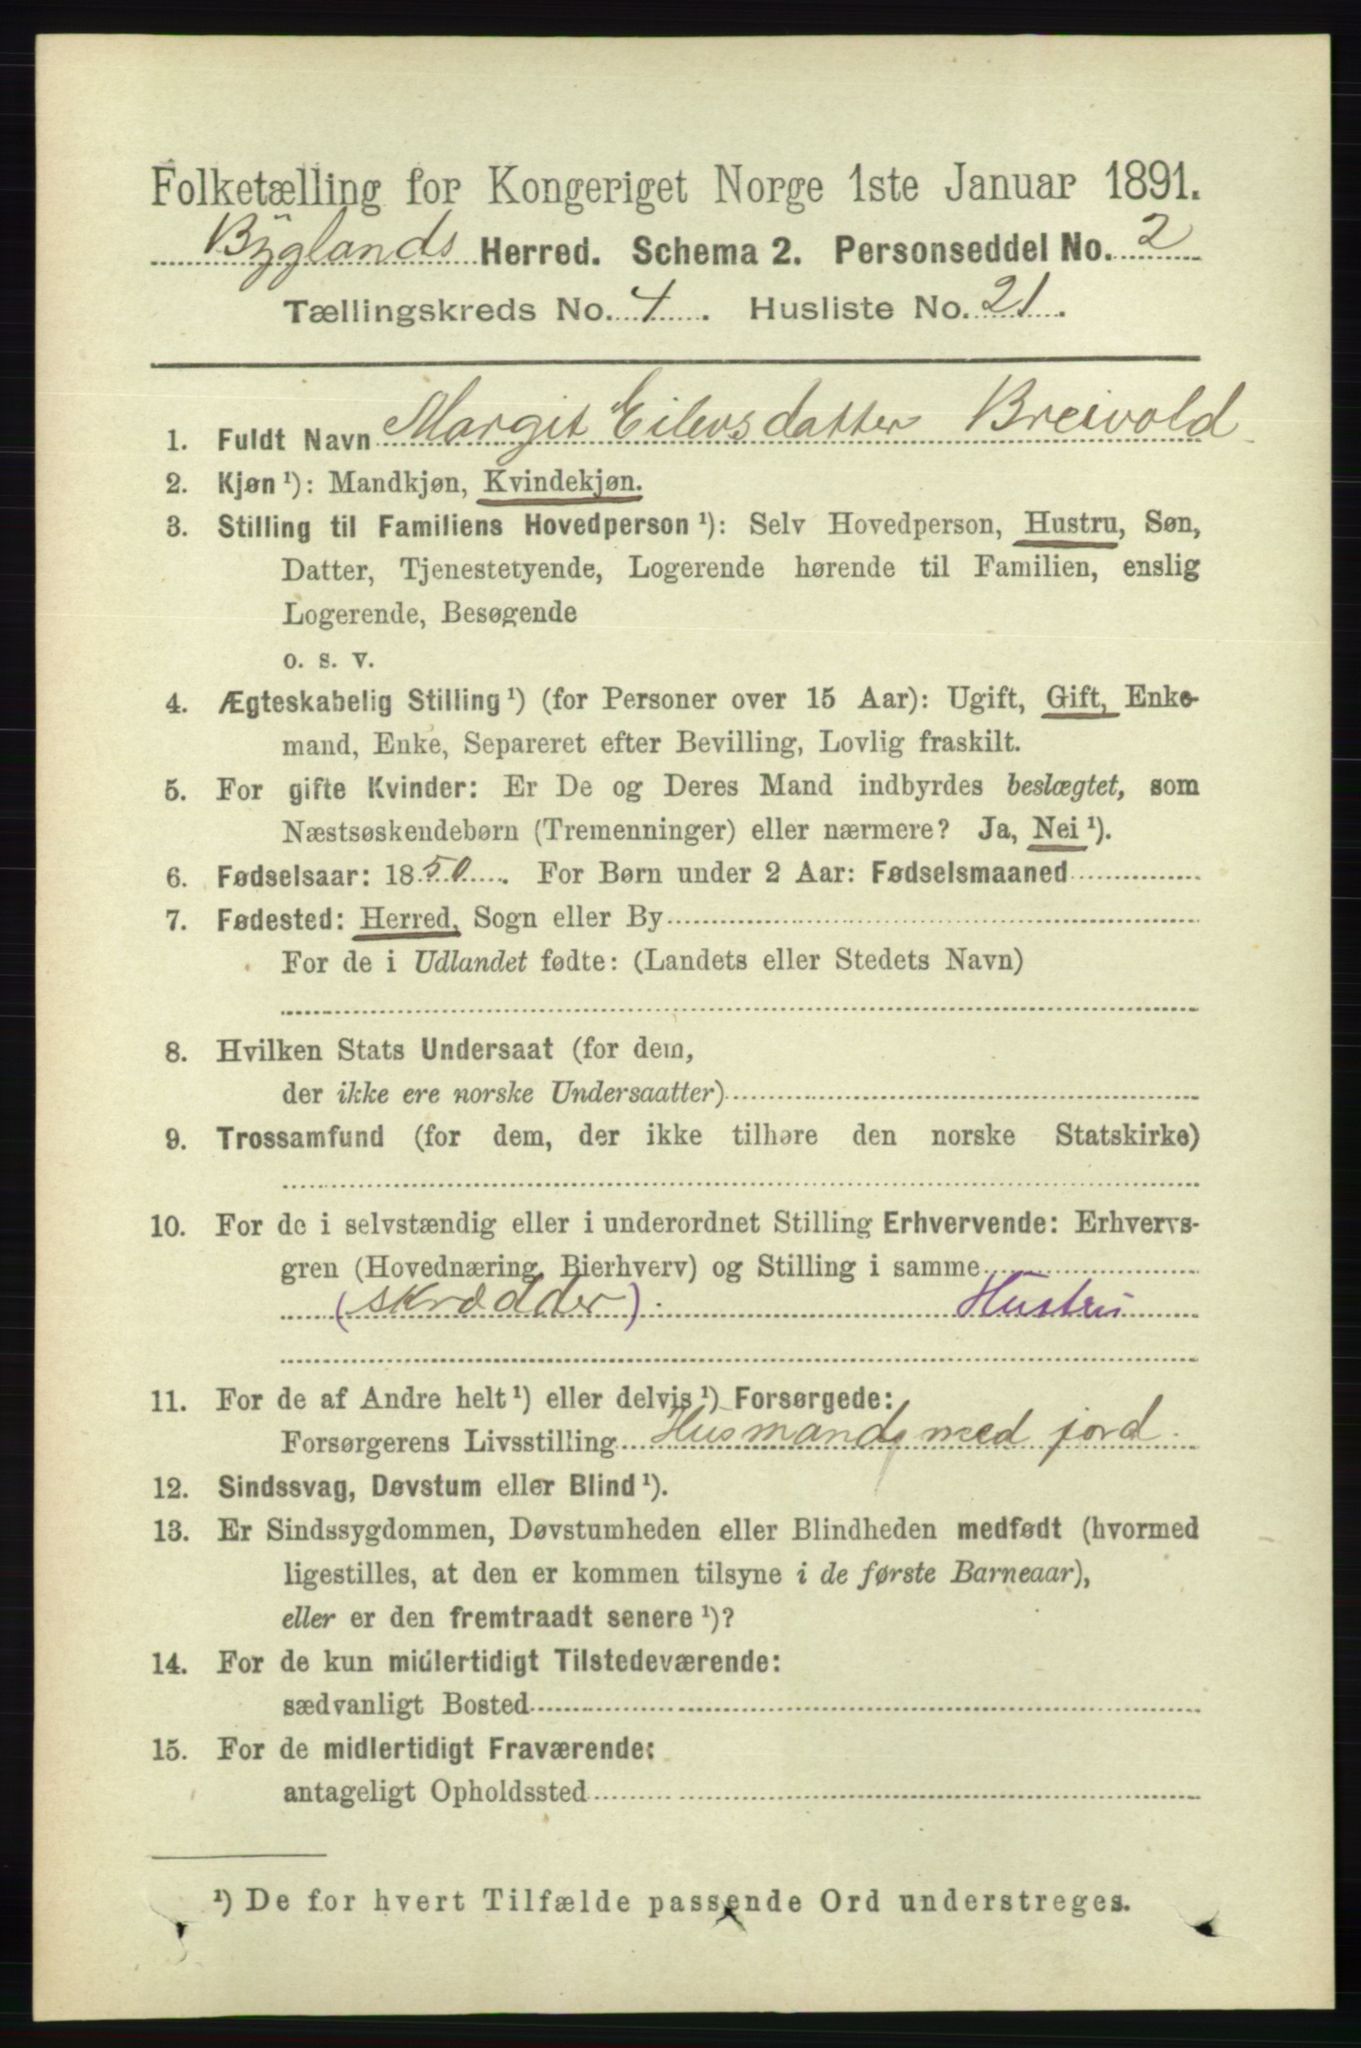 Folketælling for Kongeriget Norge 1ste Januar 1891.
Byglands Herred. Schema 2. Personseddel No. 2
Tællingskreds No. 4. Husliste No. 21.
1. Fuldt Navn Margit Eilevsdatter Breivold
2. Kjøn ¹): Mandkjøn, Kvindekjøn.
3. Stilling til Familiens Hovedperson ¹): Selv Hovedperson, Hustru, Søn,
Datter, Tjenestetyende, Logerende hørende til Familien, enslig
Logerende, Besøgende
o. s. v.
4. Ægteskabelig Stilling ¹) (for Personer over 15 Aar): Ugift, Gift, Enke-
mand, Enke, Separeret efter Bevilling, Lovlig fraskilt.
5. For gifte Kvinder: Er De og Deres Mand indbyrdes beslægtet, som
Næstsøskendebørn (Tremenninger) eller nærmere? Ja, Nei ¹).
6. Fødselsaar: 1850. For Børn under 2 Aar: Fødselsmaaned
7. Fødested: Herred, Sogn eller By
For de i Udlandet fødte: (Landets eller Stedets Navn)
8. Hvilken Stats Undersaat (for dem,
der ikke ere norske Undersaatter)
9. Trossamfund (for dem, der ikke tilhøre den norske Statskirke)
10. For de i selvstændig eller i underordnet Stilling Erhvervende: Erhvervs-
gren (Hovednæring, Bierhverv) og Stilling i samme
(skrædder). Hustru
11. For de af Andre helt ¹) eller delvis ¹) Forsørgede:
Forsørgerens Livsstilling Husmand med jord.
12. Sindssvag, Døvstum eller Blind ¹).
13. Er Sindssygdommen, Døvstumheden eller Blindheden medfødt (hvormed
ligestilles, at den er kommen tilsyne i de første Barneaar),
eller er den fremtraadt senere ¹)?
14. For de kun midlertidigt Tilstedeværende:
sædvanligt Bosted
15. For de midlertidigt Fraværende:
antageligt Opholdssted
¹) De for hvert Tilfælde passende Ord understreges.